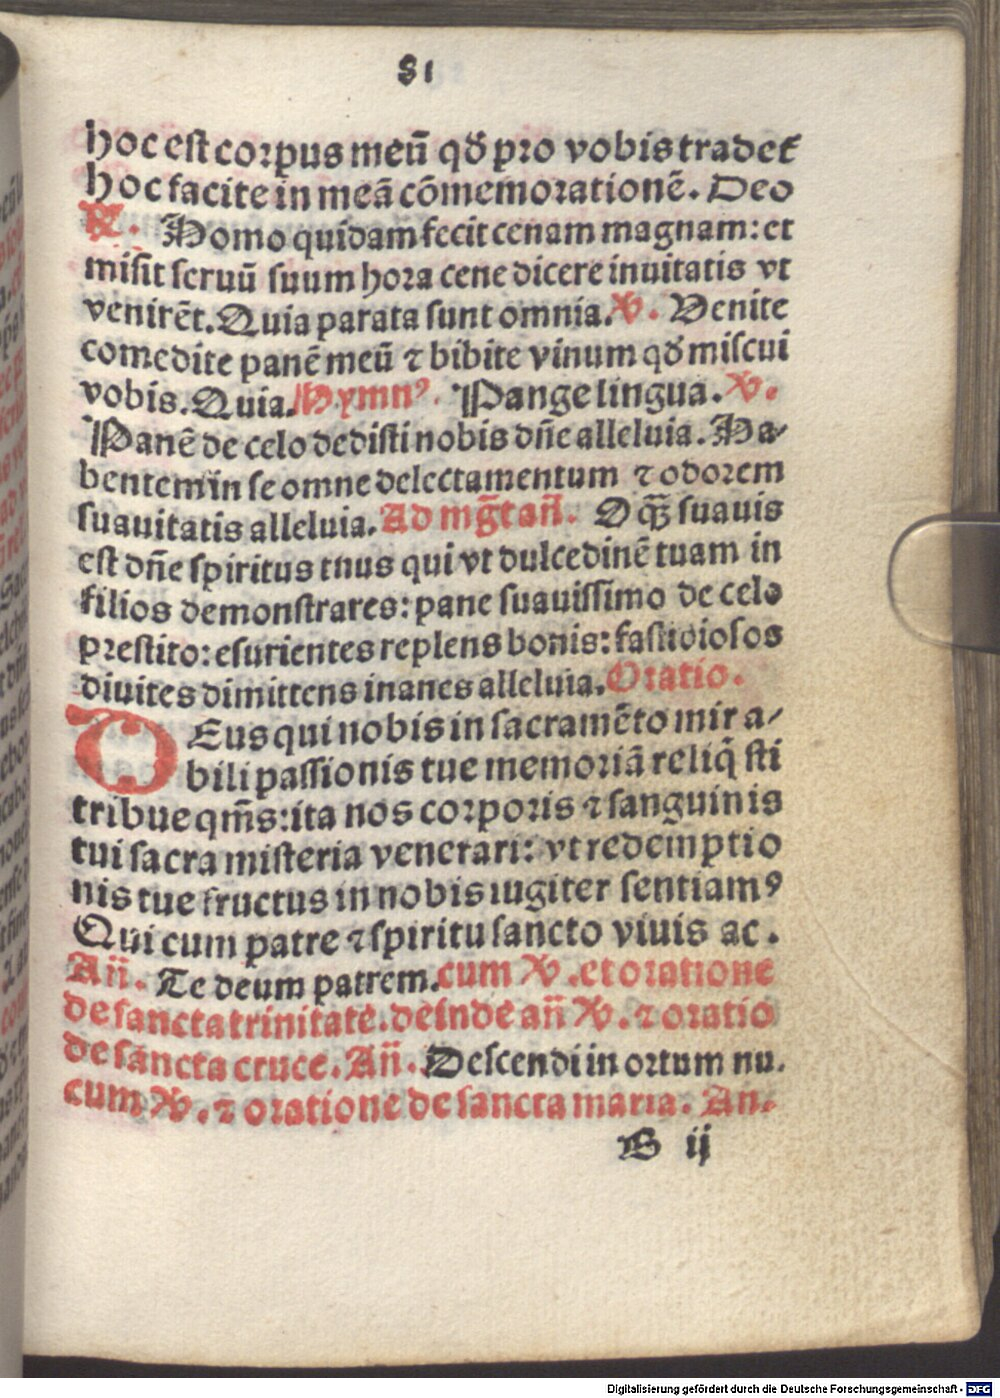 81
hoc est corpus meū qđ pro vobis tradeť
hoc facite in meā cōmemorationē. Deo
℟. Homo quidam fecit cenam magnam: et
misit seruū suum hora cene dicere inuitatis vt
venirēt. Quia parata sunt omnia. ℣. Venite
comedite panē meū ⁊ bibite vinum qđ miscui
vobis. Quia. Hymnꝰ. Pange lingua. ℣.
Panē de celo dedisti nobis dn̄e alleluia. Ha⸗
bentem in se omne delectamentum ⁊ odorem
suauitatis alleluia. Ad mg̅tan̄. O q̄ꝫ suauis
est dn̄e spiritus tuus qui vt dulcedinē tuam in
filios demonstrares: pane suauissimo de celo
prestito: esurientes replens bonis: fastidiosos
diuites dimittens inanes alleluia. Oratio.
DEus qui nobis in sacramēto mira⸗
bili passionis tue memoriā reliq̇sti
tribue qm̄s: ita nos corporis ⁊ sanguinis
tui sacra misteria venerari: vt redemptio
nis tue fructus in nobis iugiter sentiamꝰ
Qui cum patre ⁊ spiritu sancto viuis ac.
An̄. Te deum patrem. cum ℣. et oratione
de sancta trinitate. deinde an̄ ℣. ⁊ oratio
de sancta cruce. An̄. Descendi in ortum nu.
cum ℣. ⁊ oratione de sancta maria. An.
S ij
Digitalisierung gefördert durch die Deutsche Forschungsgemeinschaft - DFG